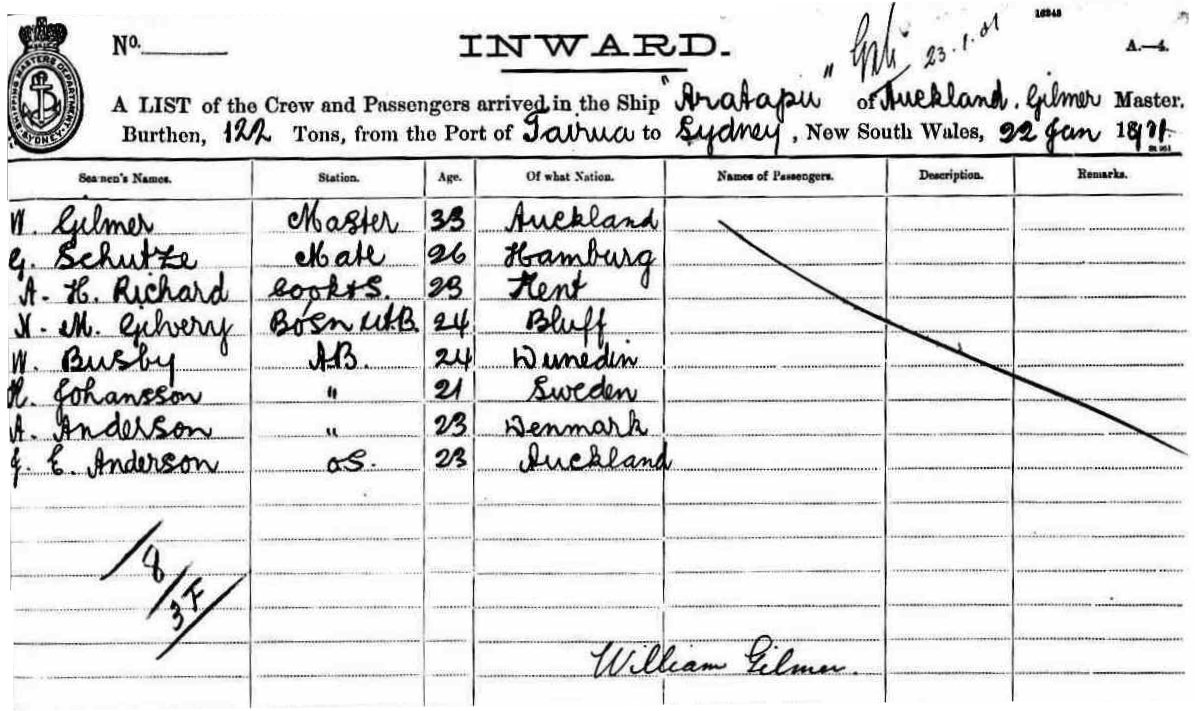 16248
No. INWARD. 23.1.01 A.—4.
SHIPPING MASTERS DEPARTMENT SYDNEY
A LIST of the Crew and Passengers arrived in the Ship "Aratapu" of Auckland, Gilmer Master.
Burthen, 122 Tons, from the Port of Tairua to Sydney, New South Wales, 22 Jan 18
Seamen's Names. Station. Age. Of what Nation. Names of Passengers. Description. Remarks.
W. Gilmer Master 33 Auckland
G. Schutze Mate 26 Hamburg
A. H. Richard Cook & S. 23 Kent
N. M. Gilvery Bosn & A.B. 24 Bluff
W. Busby A.B. 24 Dunedin
H. Johansson " 21 Sweden
A. Anderson " 23 Denmark
J. E. Anderson O.S. 23 Auckland
8
3 F
William Gilmer.